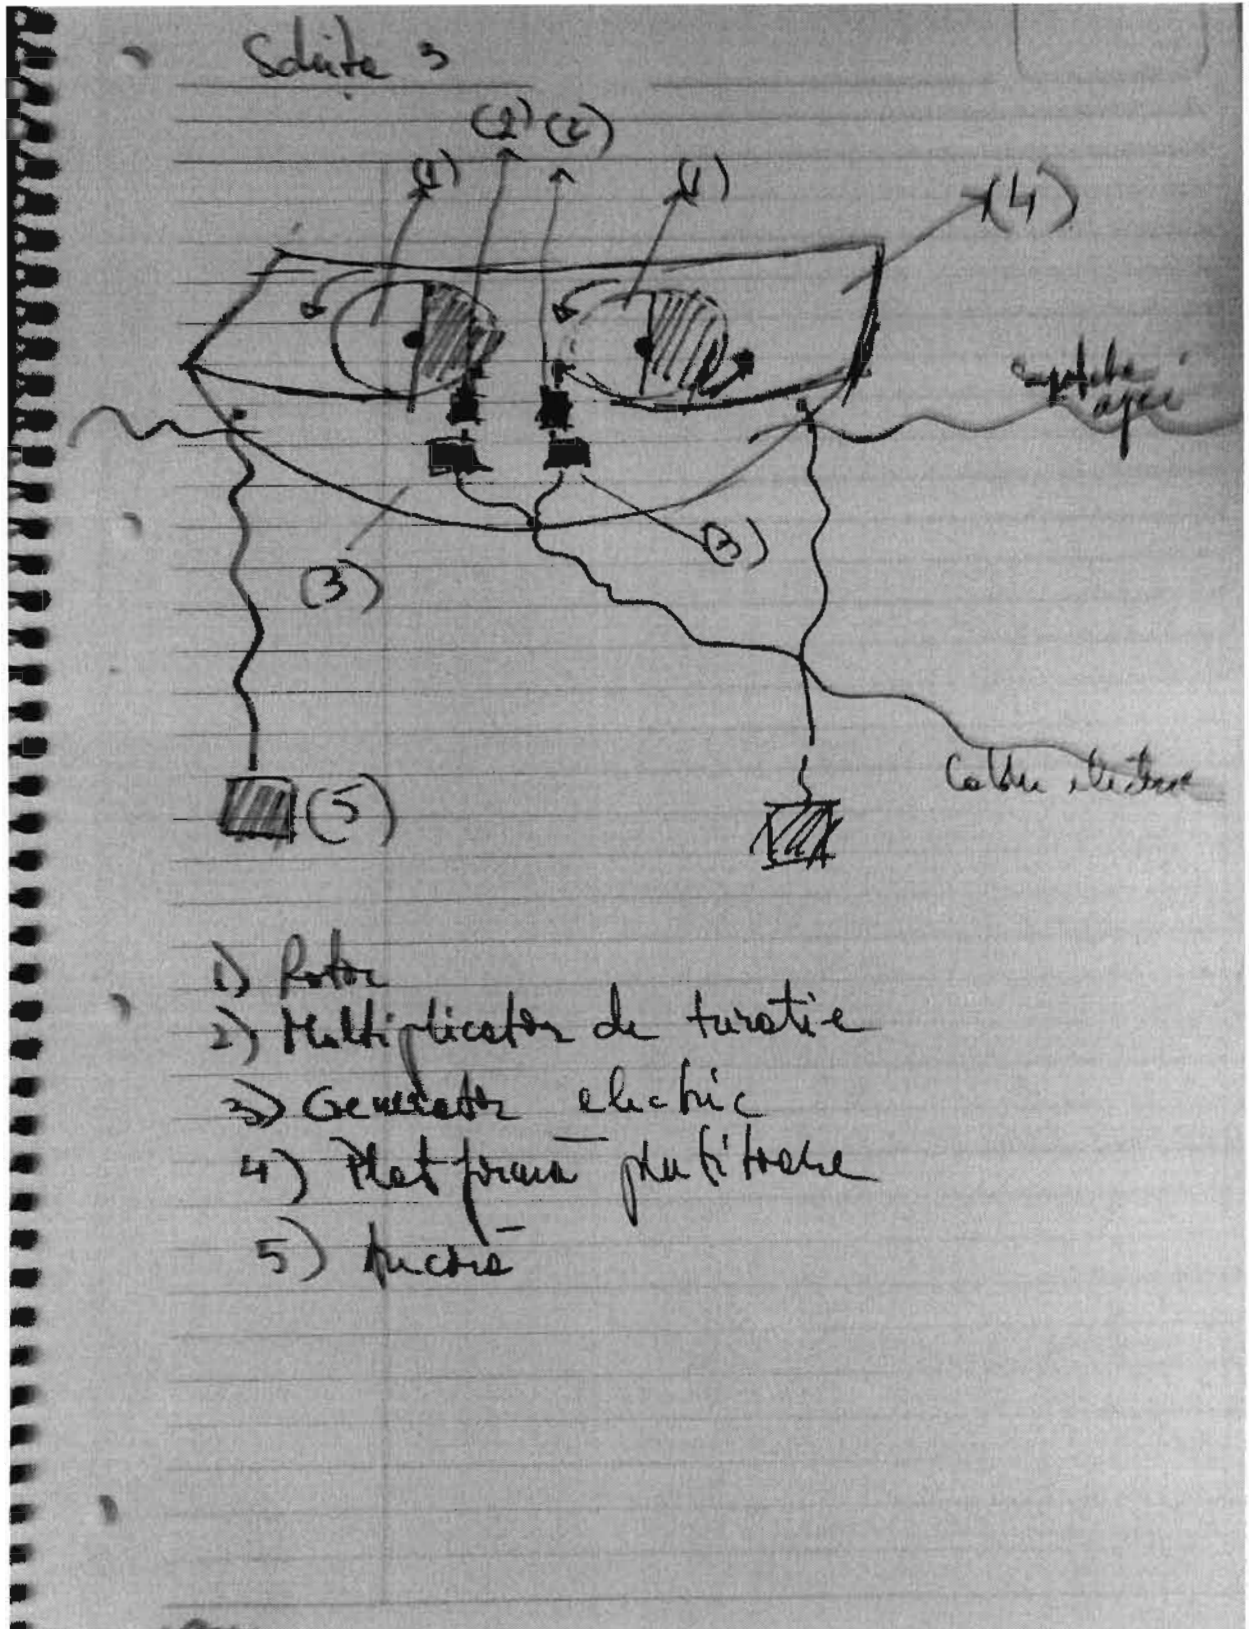 Soluție 3
(2) (2)
(1) (1) (4)
suprafața
apei
(3) (3)
Cablu electric
(5)
1) Rotor
2) Multiplicator de turatie
3) Generator electric
4) Platforma plutitoare
5) Ancoră